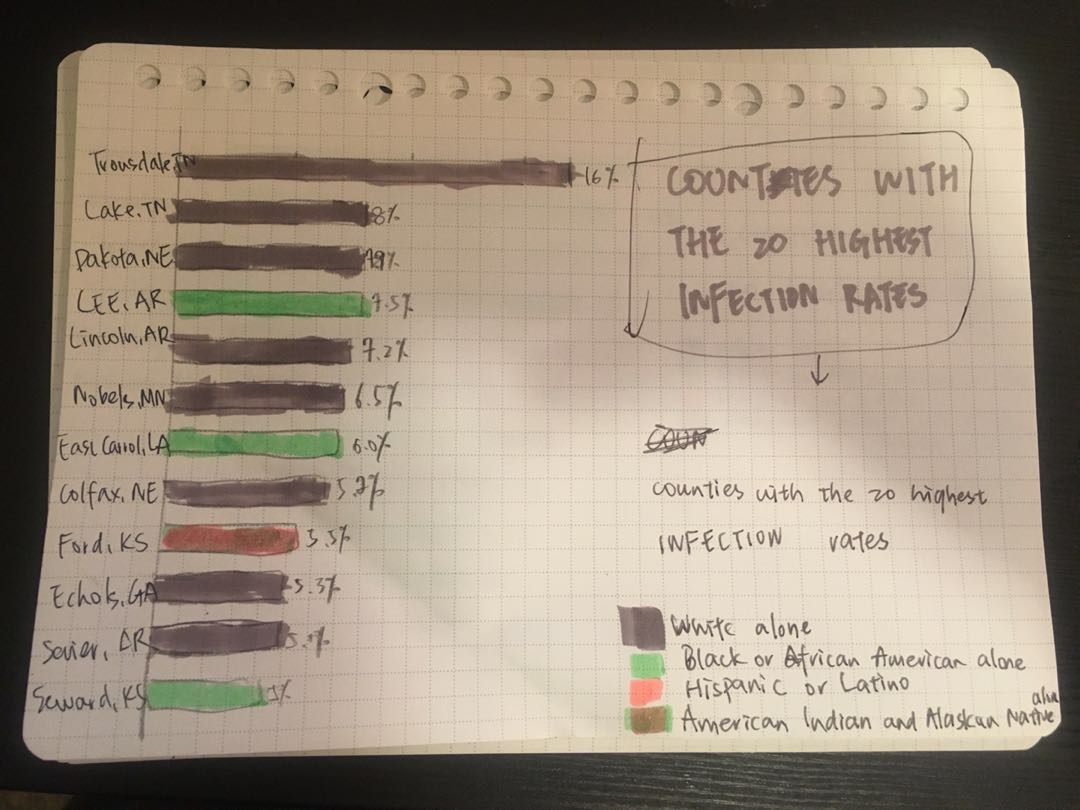 Trousdale, TN
16%
Lake, TN
8%
Dakota, NE
LEE, AR
7.5%
Lincoln, AR
7.2%
Nobels, MN
6.5%
East Carrol, LA
6.0%
Colfax, NE
Ford, KS
5.5%
Echols, GA
5.3%
Sevier, AR
Seward, KS
5%
COUNTIES WITH
THE 20 HIGHEST
INFECTION RATES
COUN
counties with the 20 highest
INFECTION rates
White alone
Black or African American alone
Hispanic or Latino
American Indian and Alaskan Native